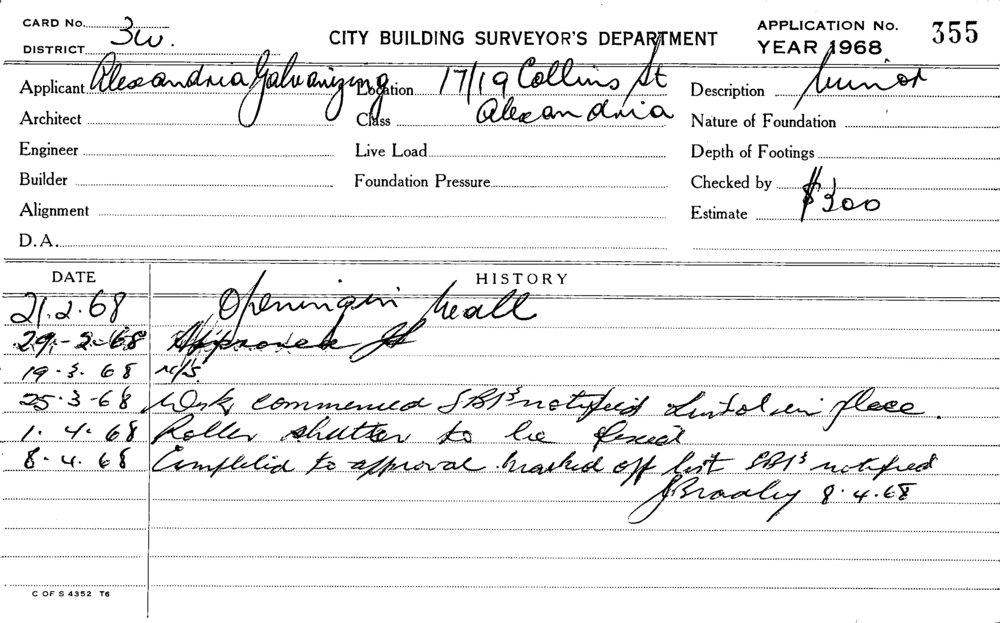 CARD No.
DISTRICT 3W.
CITY BUILDING SURVEYOR'S DEPARTMENT
APPLICATION No. 355
YEAR 1968
Applicant Alexandria Galvanizing Location 17/19 Collins St Description Minor
Architect Class Alexandria Nature of Foundation
Engineer Live Load Depth of Footings
Builder Foundation Pressure Checked by
Alignment Estimate $300
D.A.
DATE HISTORY
21.2.68 Opening in Wall
29-2-68 Approved
19.3.68 N/S.
25.3-68 Work commenced SBI's notified Lintol in place.
1.4.68 Roller shutter to be fixed
8.4.68 Completed to approval. marked off list SBI's notified
JBradley 8.4.68
C OF S 4352 T6